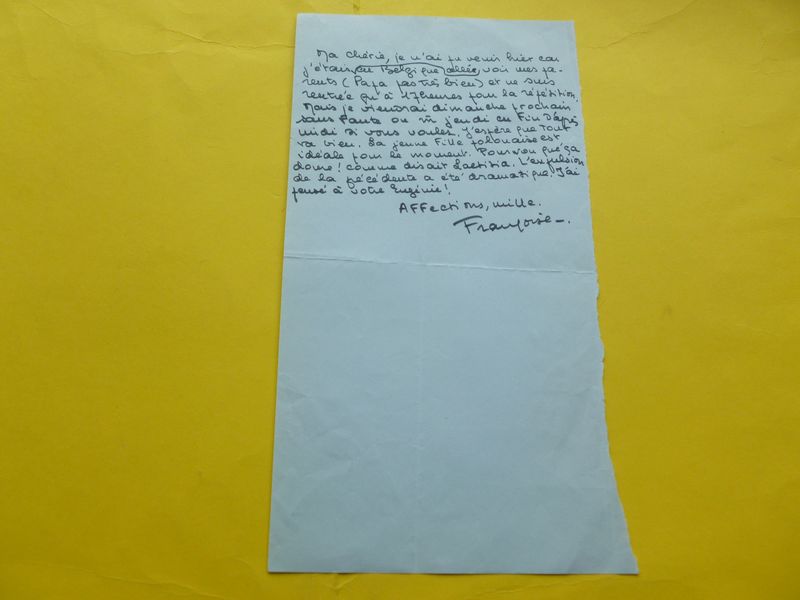 Ma chérie, je n'ai pu venir hier car
j'étais en Belgique allée voir mes pa-
rents (Papa pas très bien) et ne suis
rentrée qu'à 17 heures pour la répétition.
Mais je viendrai dimanche prochain
sans faute ou jeudi en fin d'après
midi si vous voulez. J'espère que tout
va bien. La jeune fille polonaise est
idéale pour le moment. Pourvou que ça
doure! comme disait Laetitia. L'expulsion
de la précédente a été dramatique! J'ai
pensé à votre Eugénie!
Affections, mille.
Françoise